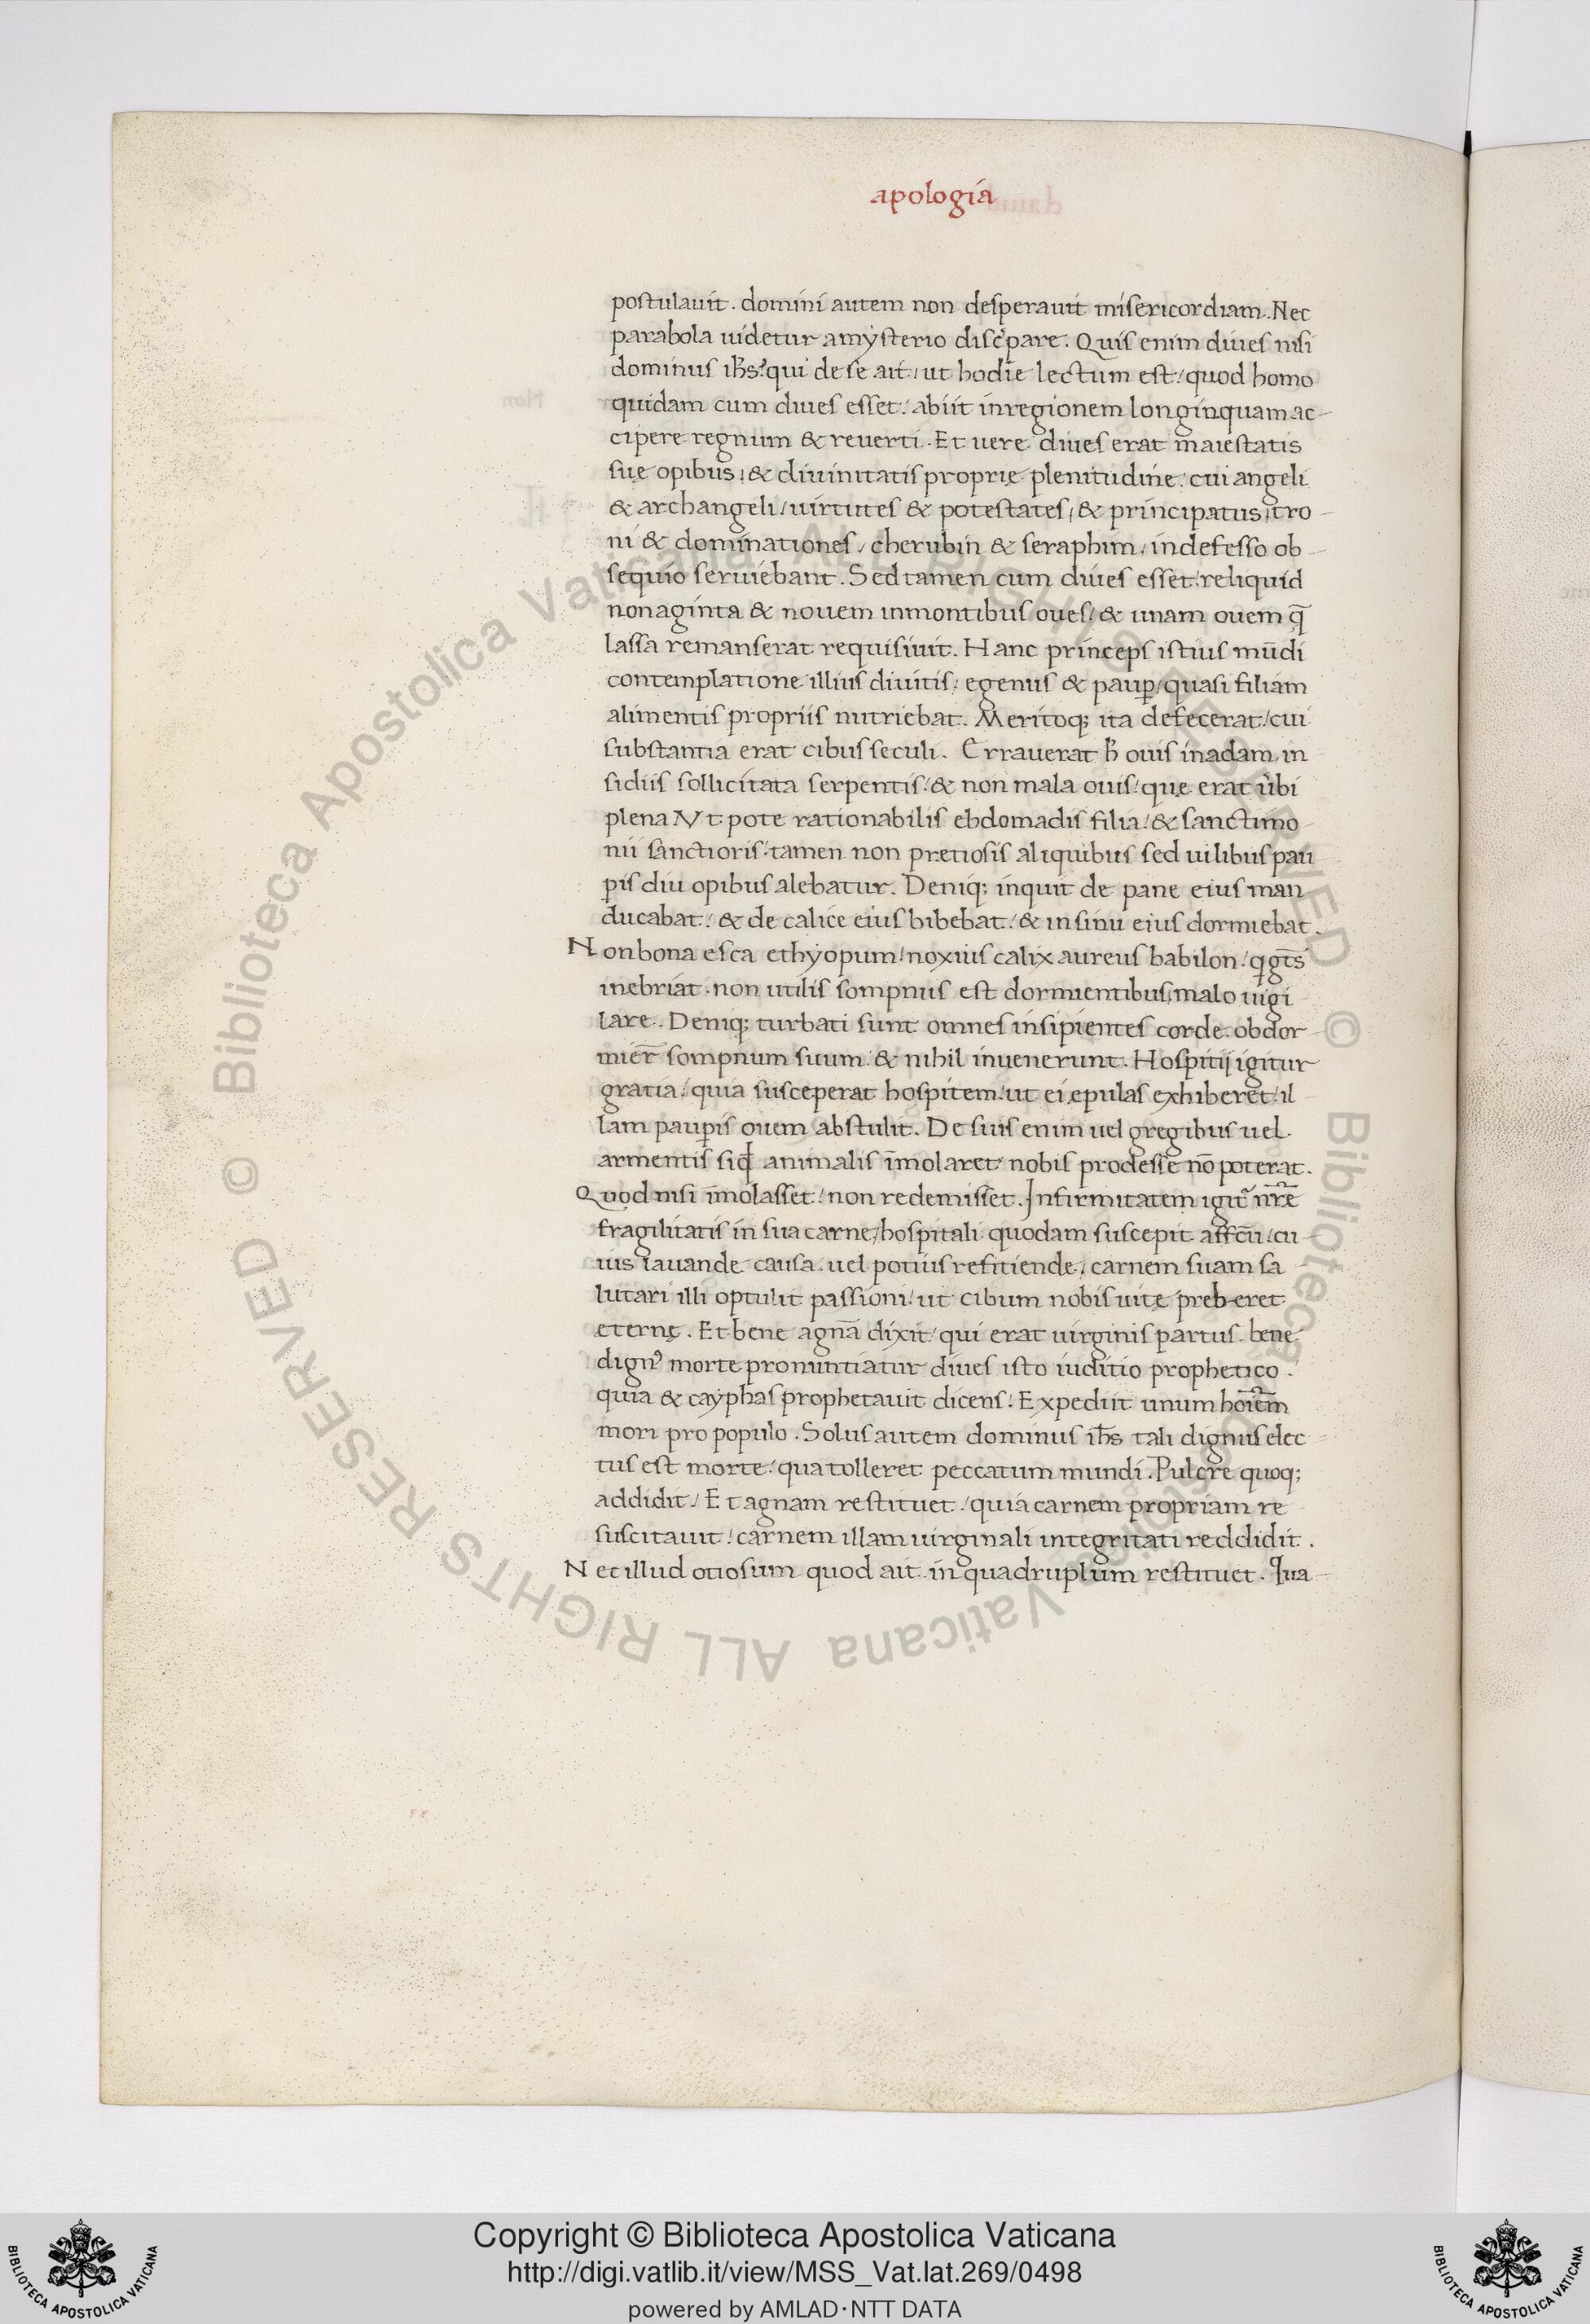 apologia
postulauit. domini autem non desperauit misericordiam. Nec
parabola uidetur amysterio discrepare. Quis enim diues nisi
dominus ihs? qui de se ait / ut hodie lectum est / quod homo
quidam cum diues esset / abiit inregionem longinquam ac-
cipere regnum & reuerti. Et uere diues erat maiestatis
suę opibus / & diuinitatis proprię plenitudine / cui angeli
& archangeli / uirtutes & potestates / & principatus / tro-
ni & dominationes / cherubin & seraphim / indefesso ob-
sequio seruiebant. Sed tamen cum diues esset / reliquid
nonaginta & nouem inmontibus oues / & unam ouem q̄
lassa remanserat requisiuit. Hanc princeps istius mūdi
contemplatione illius diuitis / egenus & paup̱ / quasi filiam
alimentis propriis nutriebat. Meritoq; ita defecerat / cui
substantia erat cibus seculi. Errauerat h̄ ouis inadam / in
sidiis sollicitata serpentis / & non mala ouis / quę erat ubi
plena Vt pote rationabilis ebdomadis filia / & sanctimo-
nii sanctioris / tamen non pretiosis aliquibus sed uilibus pau
p̱is diu opibus alebatur. Deniq; inquit de pane eius man-
ducabat / & de calice eius bibebat / & in sinu eius dormiebat.
Non bona esca ethyopum / noxius calix aureus babilon / q̄ gt̄s
inebriat. non utilis sompnus est dormientibus / malo uigi
lare. Deniq; turbati sunt omnes insipientes corde. obdor-
mier̄ sompnum suum & nihil inuenerunt. Hospitij igitur
gratia / quia susceperat hospitem / ut ei epulas exhiberet / il
lam paup̱is ouem abstulit. De suis enim uel gregibus uel
armentis siqd animalis īmolaret nobis prodesse nō poterat.
Quod nisi īmolasset / non redemisset. Infirmitatem igit̄ nr̄e
fragilitatis in sua carne / hospitali quodam suscepit affcū / cu-
ius lauande causa. uel potius refitiende / carnem suam sa
lutari illi optulit passioni / ut cibum nobis uitę preberet
eternę. Et bene agnā dixit / qui erat uirginis partus. bene
dign' morte pronuntiatur diues isto iuditio prophetico.
quia & cayphas prophetauit dicens / Expediit unum hoīem
mori pro populo. Solus autem dominus ihs tali dignus elec
tus est morte / qua tolleret peccatum mundi. Pulcre quoq;
addidit / Et agnam restituet / quia carnem propriam re
suscitauit / carnem illam uirginali integritati reddidit.
Nec illud otiosum quod ait in quadruplum restituet. Qua-
© Biblioteca Apostolica Vaticana ALL RIGHTS RESERVED © Biblioteca Apostolica Vaticana ALL RIGHTS RESERVED
Copyright © Biblioteca Apostolica Vaticana
http://digi.vatlib.it/view/MSS_Vat.lat.269/0498
powered by AMLAD·NTT DATA
BIBLIOTECA APOSTOLICA VATICANA
BIBLIOTECA APOSTOLICA VATICANA